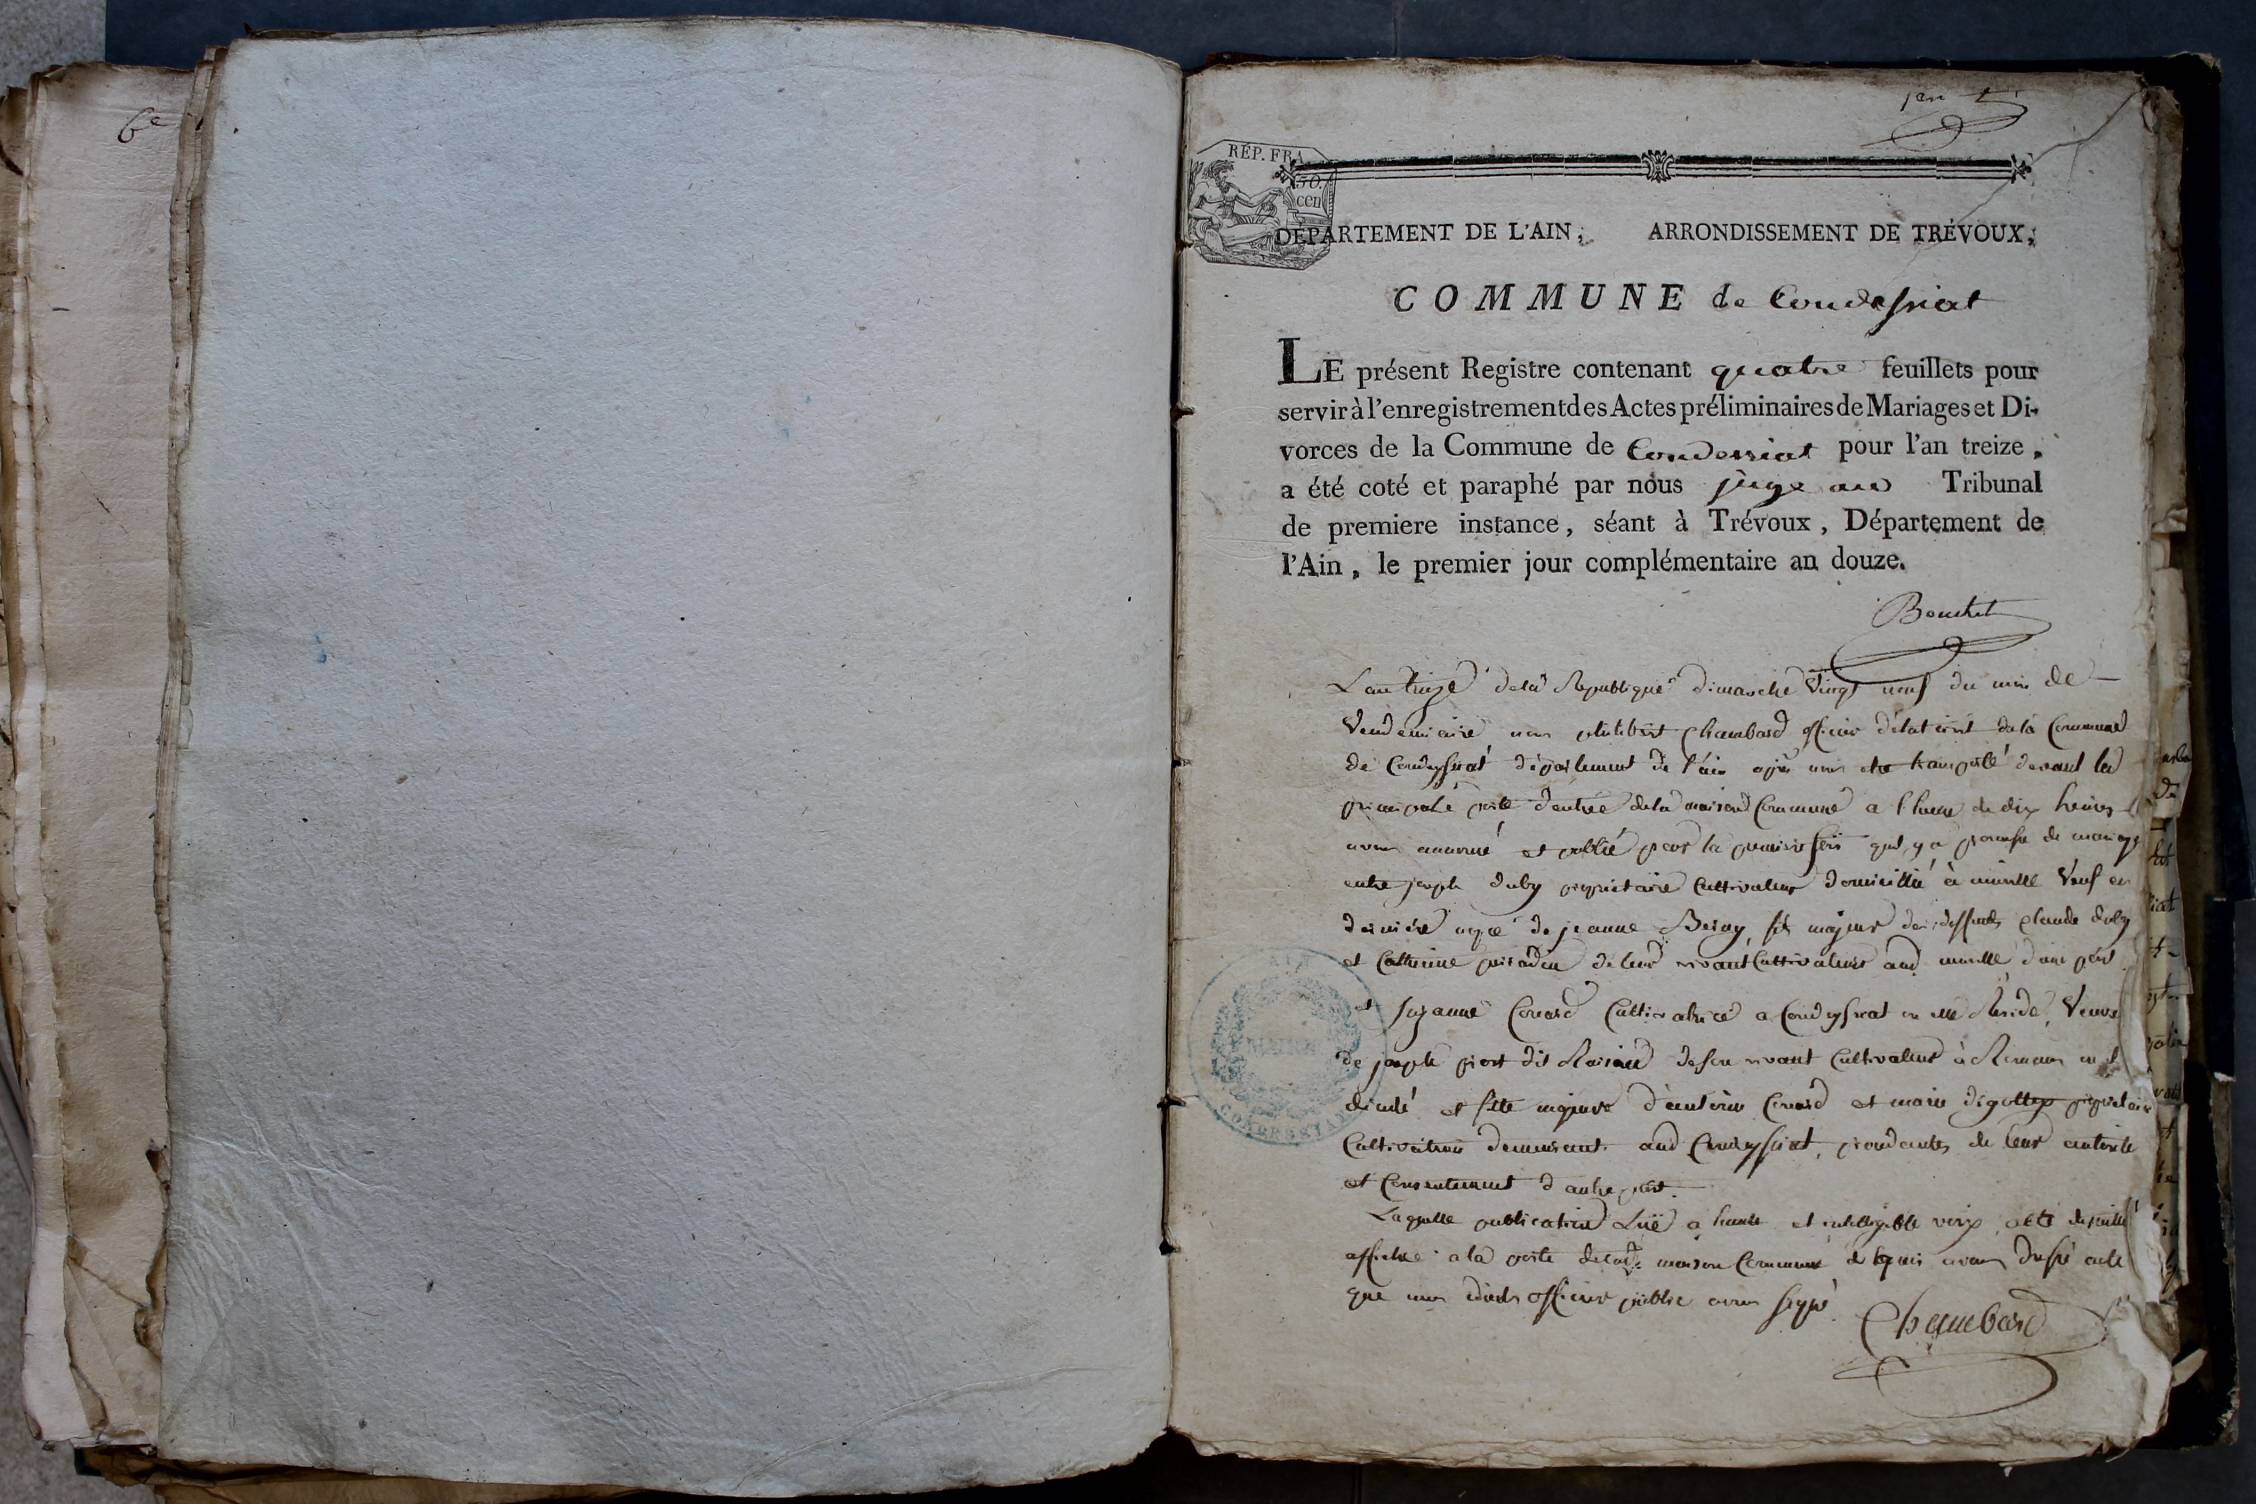 6e
1er
RÉP. FRA
50
cen
DÉPARTEMENT DE L'AIN, ARRONDISSEMENT DE TRÉVOUX,
COMMUNE de Condessiat
LE présent Registre contenant quatre feuillets pour
servir à l'enregistrement des Actes préliminaires de Mariages et Di-
vorces de la Commune de Condessiat pour l'an treize,
a été coté et paraphé par nous juge au Tribunal
de premiere instance, séant à Trévoux, Département de
l'Ain, le premier jour complémentaire an douze.
Bouchet
L'an treize de la Republique dimanche vingt neuf du mois de
Vendemiaire nous philibert Chambard officier d'état civil de la Commune
de Condeyssiat département de l'ain après nous etre transporté devant la
principale porte d'entrée de la maison Commune a l'heure de dix heures
avons annoncé et publié pour la premiere fois qu'il y a promesse de mariage
entre joseph duby propriétaire Cultivateur domicillié à veuf en
derniere de jeanne fils majeur des deffunts Claude duby
et Catherine de leur vivant Cultivateurs aud d'une part
et suzanne Conard Cultivatrice a Condeyssiat ou elle Réside, Veuve
de joseph dit de son vivant Cultivateur à Romans
et fille majeure d'antoine Conard et marie propriétaires
Cultivateurs demeurant aud Condeyssiat, de leur autorité
et Consentement d'autre part.
Laquelle publication Luë a haute et intelligible voix, a été de suite
affichée a la porte de lad. maison Commune de quoi avons dressé acte
que nous dit officier public avons signé.
Chambard
AIN
MAIRIE
CONDESSIAT